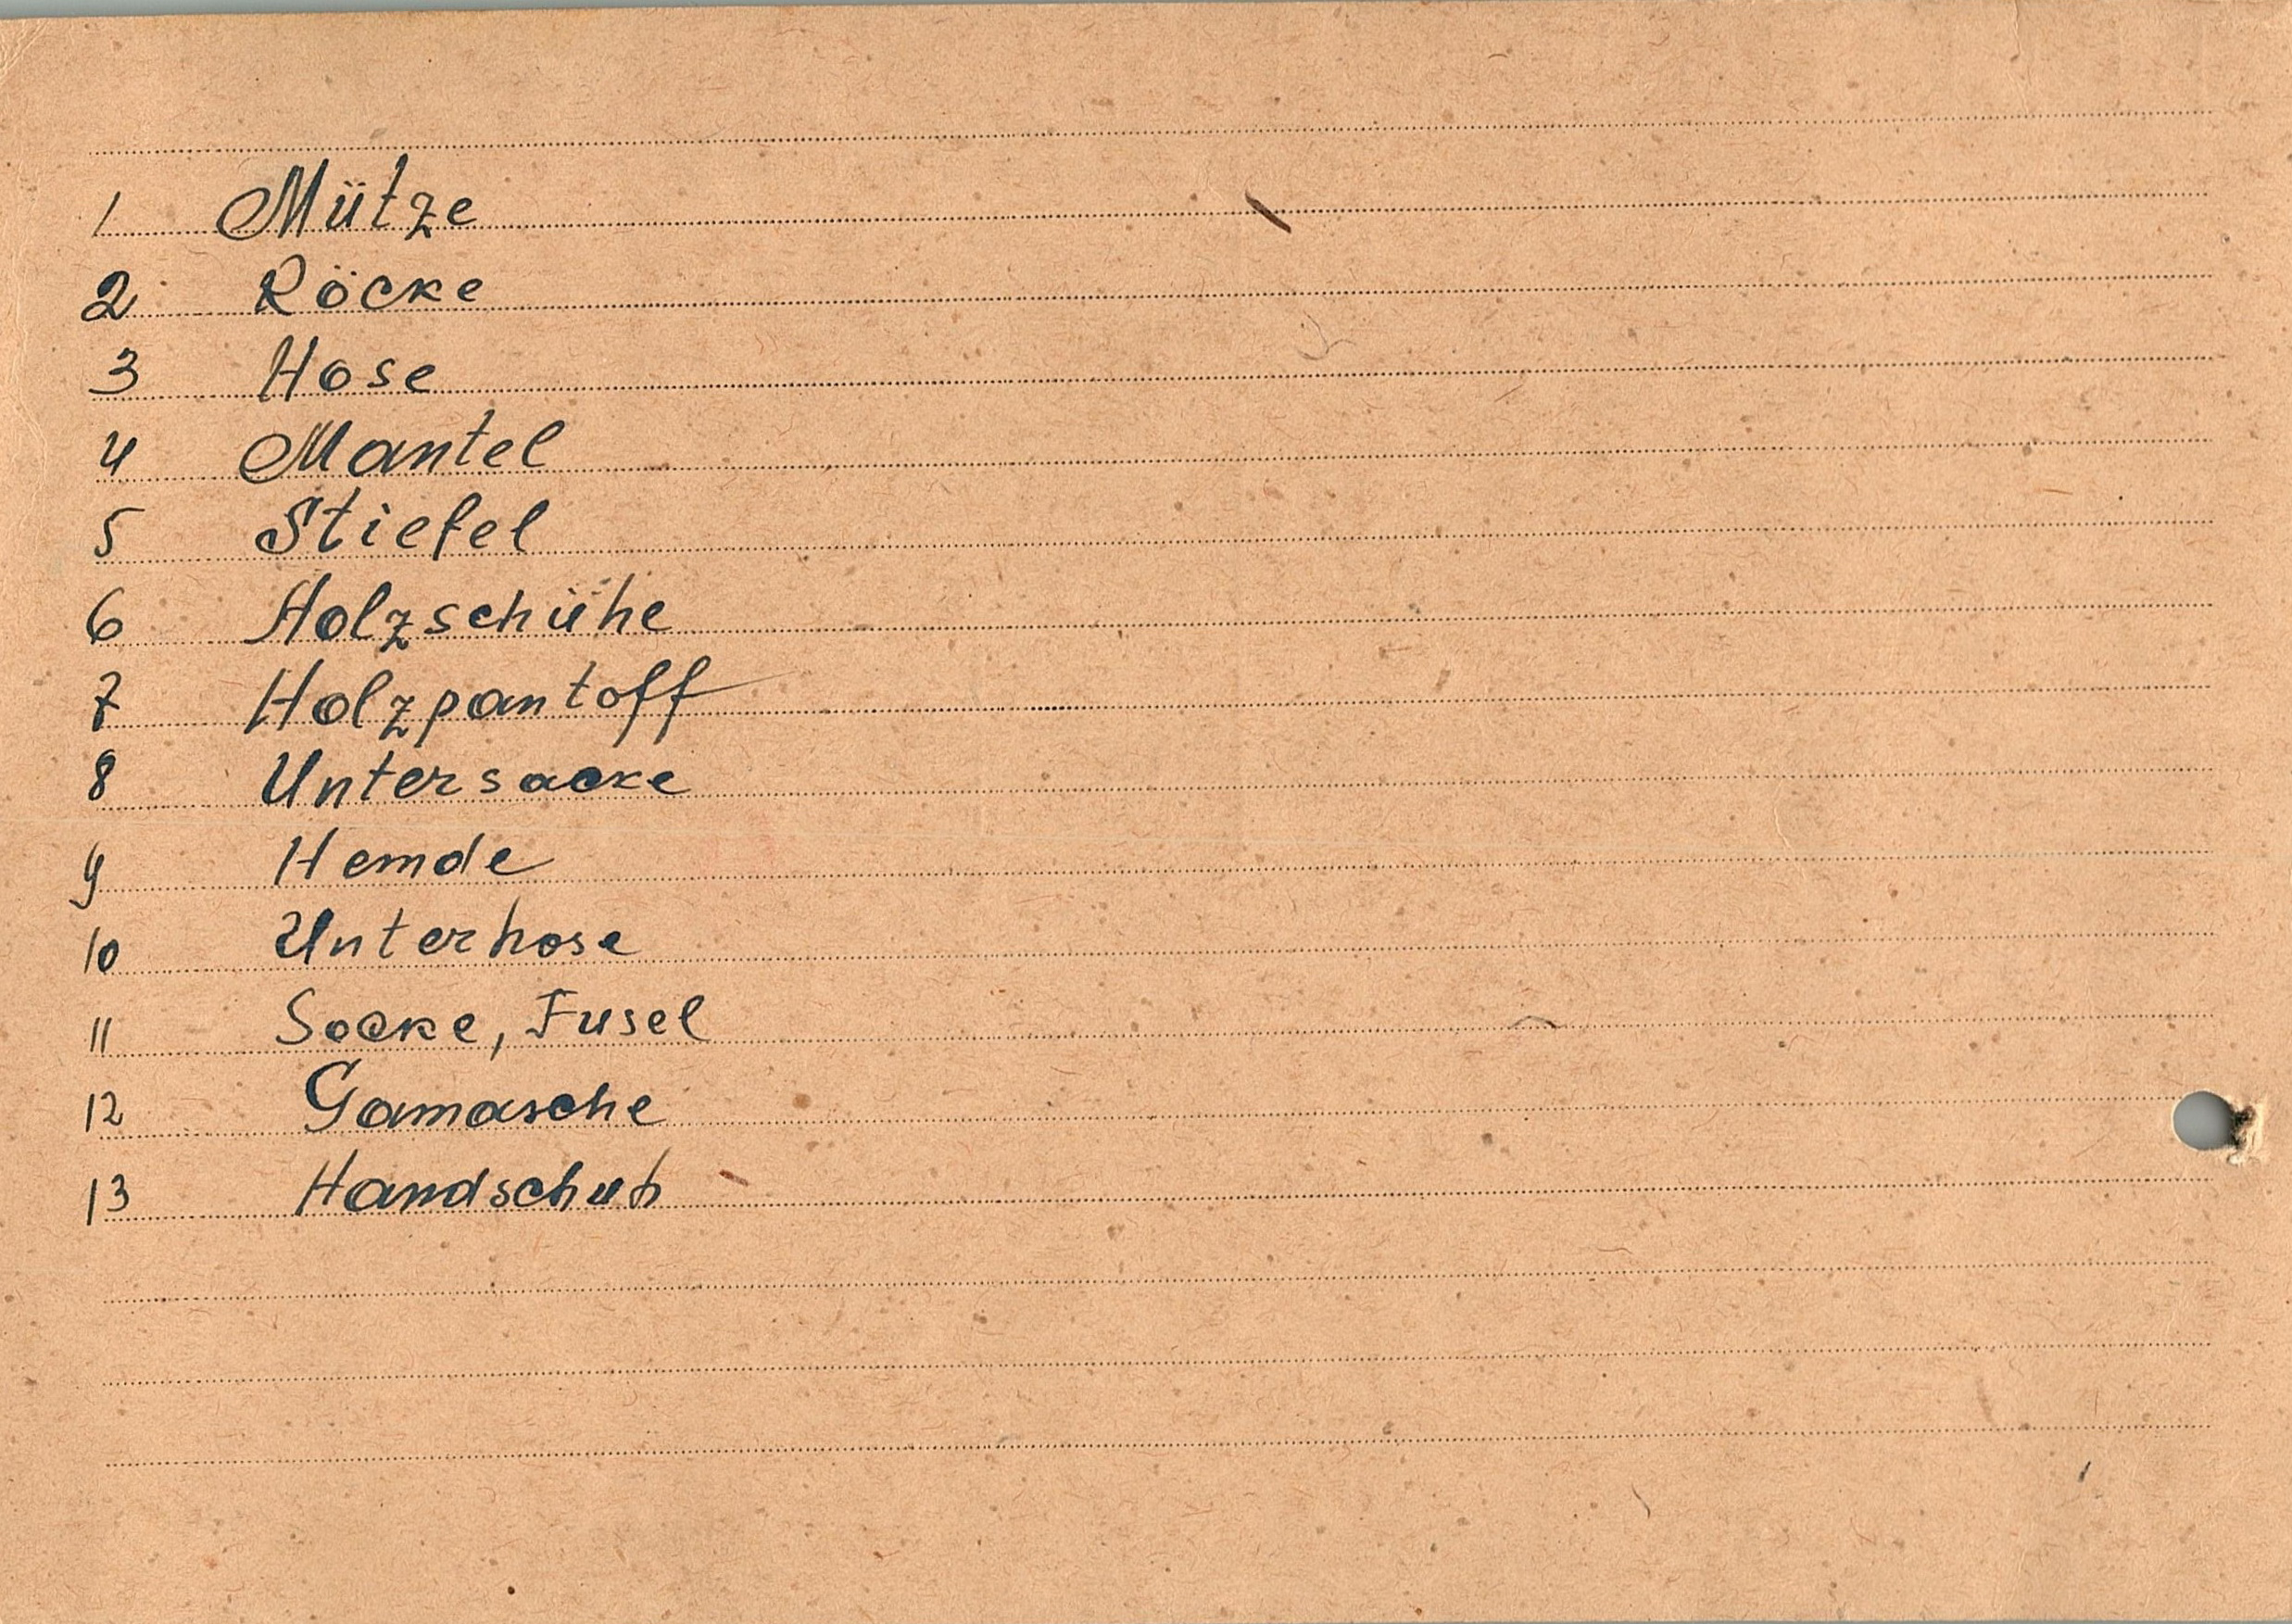 1 Mütze
2 Röcke
3 Hose
4 Mantel
5 Stiefel
6 Holzschühe
7 Holzpantoff
8 Untersacke
9 Hemde
10 Unterhose
11 Socke, Fusel
12 Gamasche
13 Handschuh